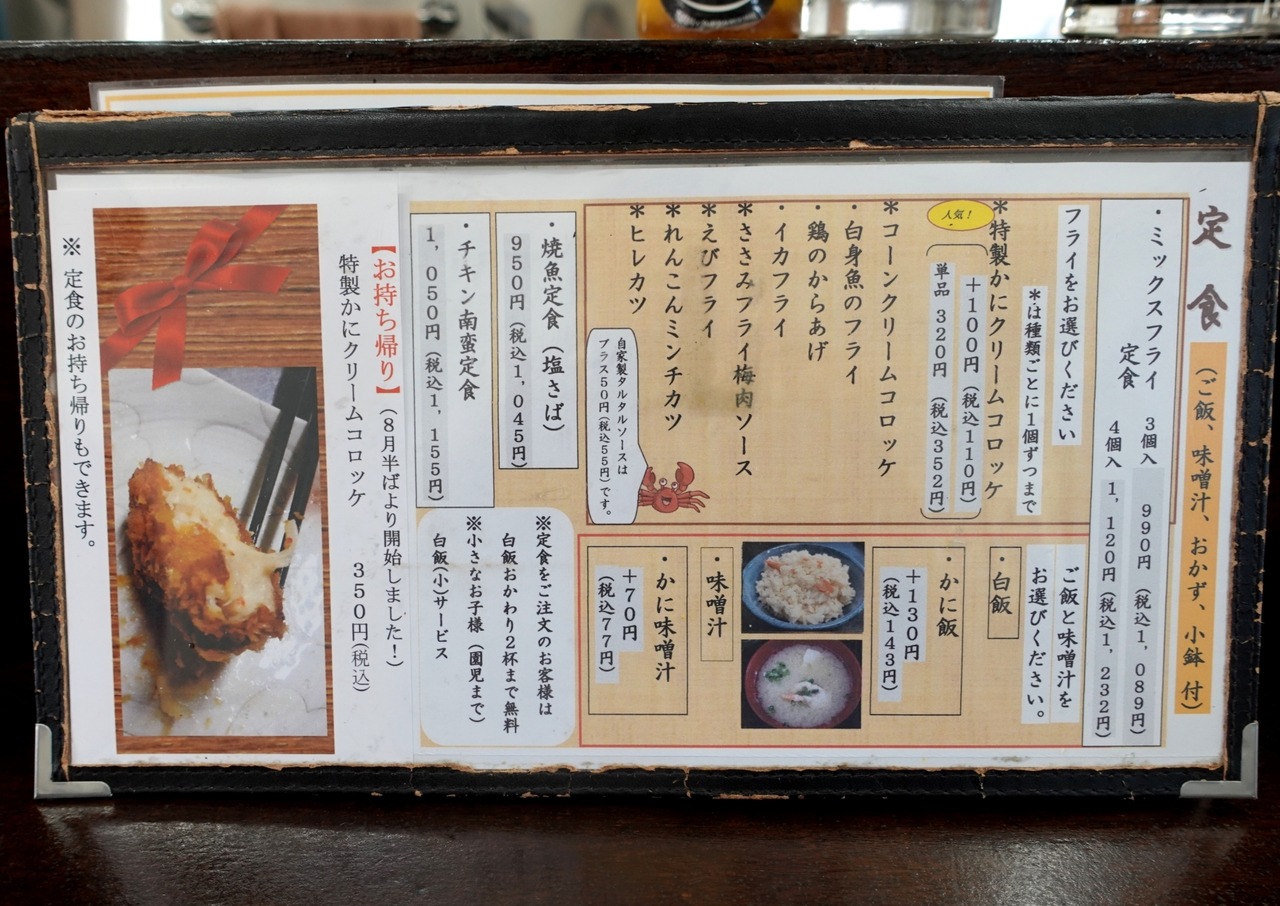 定食
（ご飯、味噌汁、おかず、小鉢 付）
・ミックスフライ 3個入 990円（税込1,089円）
定食 4個入 1,120円（税込1,232円）
フライをお選びください
＊は種類ごとに1個ずつまで
＊特製かにクリームコロッケ
人気！
＋100円（税込110円）
単品 320円（税込352円）
＊コーンクリームコロッケ
・白身魚のフライ
・鶏のからあげ
・イカフライ
＊ささみフライ梅肉ソース
＊えびフライ
＊れんこんミンチカツ
＊ヒレカツ
自家製タルタルソースは
プラス50円（税込55円）です。
ご飯と味噌汁を
お選びください。
・白飯
・かに飯
＋130円
（税込143円）
・味噌汁
・かに味噌汁
＋70円
（税込77円）
・焼魚定食（塩さば）
950円（税込1,045円）
・チキン南蛮定食
1,050円（税込1,155円）
※定食をご注文のお客様は
白飯おかわり2杯まで無料
※小さなお子様（園児まで）
白飯(小)サービス
【お持ち帰り】（8月半ばより開始しました！）
特製かにクリームコロッケ 350円(税込)
※ 定食のお持ち帰りもできます。